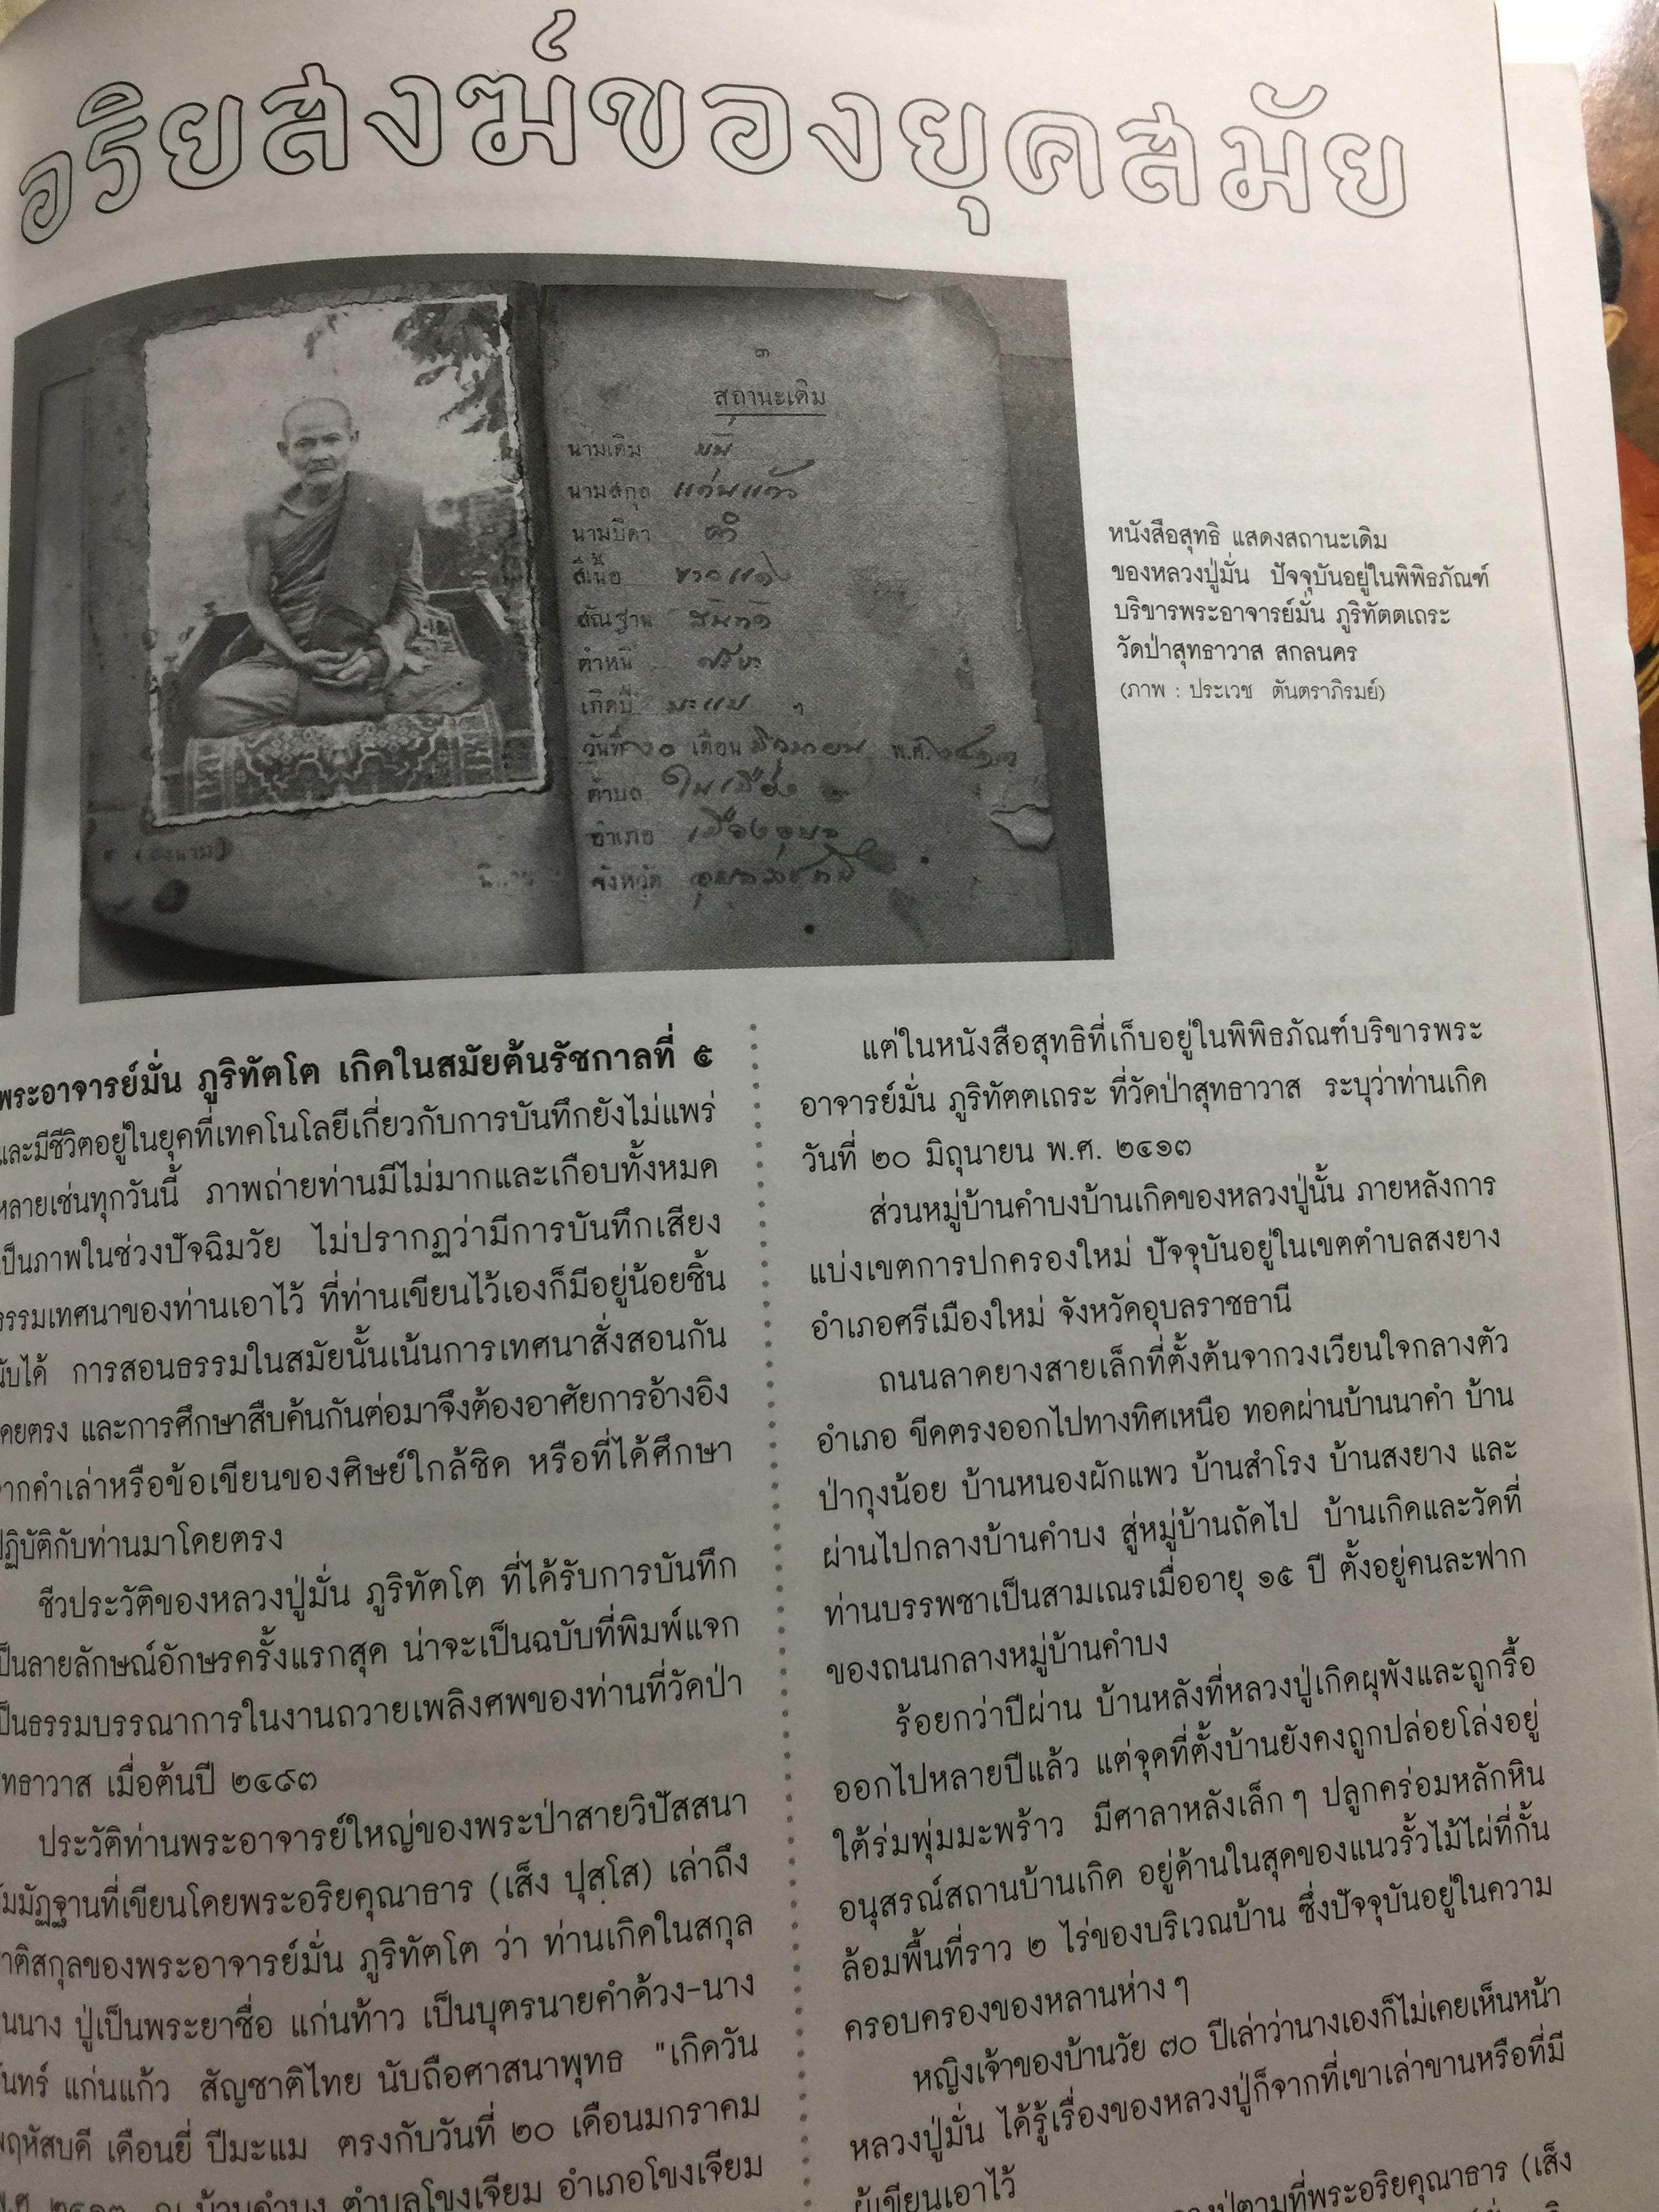 อริยสงฆ์ของยุคสมัย
๓
สถานะเดิม
นามเดิม มั่น
นามสกุล แก่นแก้ว
นามบิดา
สีเนื้อ ขาวแดง
สัณฐาน สันทัด
ตำหนิ
เกิดปี มะแม ฯ
วันที่ ๒๐ เดือน มิถุนายน พ.ศ. ๒๔๑๓
ตำบล ในเมือง
อำเภอ เมืองอุบล
จังหวัด อุบลราชธานี
หนังสือสุทธิ แสดงสถานะเดิม
ของหลวงปู่มั่น ปัจจุบันอยู่ในพิพิธภัณฑ์
บริขารพระอาจารย์มั่น ภูริทัตตเถระ
วัดป่าสุทธาวาส สกลนคร
(ภาพ : ประเวช ตันตราภิรมย์)
พระอาจารย์มั่น ภูริทัตโต เกิดในสมัยต้นรัชกาลที่ ๕
และมีชีวิตอยู่ในยุคที่เทคโนโลยีเกี่ยวกับการบันทึกยังไม่แพร่
หลายเช่นทุกวันนี้ ภาพถ่ายท่านมีไม่มากและเกือบทั้งหมด
เป็นภาพในช่วงปัจฉิมวัย ไม่ปรากฏว่ามีการบันทึกเสียง
ธรรมเทศนาของท่านเอาไว้ ที่ท่านเขียนไว้เองก็มีอยู่น้อยชิ้น
นับได้ การสอนธรรมในสมัยนั้นเน้นการเทศนาสั่งสอนกัน
โดยตรง และการศึกษาสืบค้นกันต่อมาจึงต้องอาศัยการอ้างอิง
จากคำเล่าหรือข้อเขียนของศิษย์ใกล้ชิด หรือที่ได้ศึกษา
ปฏิบัติกับท่านมาโดยตรง
ชีวประวัติของหลวงปู่มั่น ภูริทัตโต ที่ได้รับการบันทึก
เป็นลายลักษณ์อักษรครั้งแรกสุด น่าจะเป็นฉบับที่พิมพ์แจก
เป็นธรรมบรรณาการในงานถวายเพลิงศพของท่านที่วัดป่า
สุทธาวาส เมื่อต้นปี ๒๔๙๓
ประวัติท่านพระอาจารย์ใหญ่ของพระป่าสายวิปัสสนา
กัมมัฏฐานที่เขียนโดยพระอริยคุณาธาร (เส็ง ปุสฺโส) เล่าถึง
ชาติสกุลของพระอาจารย์มั่น ภูริทัตโต ว่า ท่านเกิดในสกุล
ขุนนาง ปู่เป็นพระยาชื่อ แก่นท้าว เป็นบุตรนายคำด้วง-นาง
จันทร์ แก่นแก้ว สัญชาติไทย นับถือศาสนาพุทธ "เกิดวัน
พฤหัสบดี เดือนยี่ ปีมะแม ตรงกับวันที่ ๒๐ เดือนมกราคม
พ.ศ. ๒๔๑๓ ณ บ้านคำบง ตำบลโขงเจียม อำเภอโขงเจียม
แต่ในหนังสือสุทธิที่เก็บอยู่ในพิพิธภัณฑ์บริขารพระ
อาจารย์มั่น ภูริทัตตเถระ ที่วัดป่าสุทธาวาส ระบุว่าท่านเกิด
วันที่ ๒๐ มิถุนายน พ.ศ. ๒๔๑๓
ส่วนหมู่บ้านคำบงบ้านเกิดของหลวงปู่นั้น ภายหลังการ
แบ่งเขตการปกครองใหม่ ปัจจุบันอยู่ในเขตตำบลสงยาง
อำเภอศรีเมืองใหม่ จังหวัดอุบลราชธานี
ถนนลาดยางสายเล็กที่ตั้งต้นจากวงเวียนใจกลางตัว
อำเภอ ขีดตรงออกไปทางทิศเหนือ ทอดผ่านบ้านนาคำ บ้าน
ป่ากุงน้อย บ้านหนองผักแพว บ้านสำโรง บ้านสงยาง และ
ผ่านไปกลางบ้านคำบง สู่หมู่บ้านถัดไป บ้านเกิดและวัดที่
ท่านบรรพชาเป็นสามเณรเมื่ออายุ ๑๕ ปี ตั้งอยู่คนละฟาก
ของถนนกลางหมู่บ้านคำบง
ร้อยกว่าปีผ่าน บ้านหลังที่หลวงปู่เกิดผุพังและถูกรื้อ
ออกไปหลายปีแล้ว แต่จุดที่ตั้งบ้านยังคงถูกปล่อยโล่งอยู่
ใต้ร่มพุ่มมะพร้าว มีศาลาหลังเล็ก ๆ ปลูกคร่อมหลักหิน
อนุสรณ์สถานบ้านเกิด อยู่ด้านในสุดของแนวรั้วไม้ไผ่ที่กั้น
ล้อมพื้นที่ราว ๒ ไร่ของบริเวณบ้าน ซึ่งปัจจุบันอยู่ในความ
ครอบครองของหลานห่าง ๆ
หญิงเจ้าของบ้านวัย ๗๐ ปีเล่าว่านางเองก็ไม่เคยเห็นหน้า
หลวงปู่มั่น ได้รู้เรื่องของหลวงปู่ก็จากที่เขาเล่าขานหรือที่มี
ผู้เขียนเอาไว้
ตามที่พระอริยคุณาธาร (เส็ง